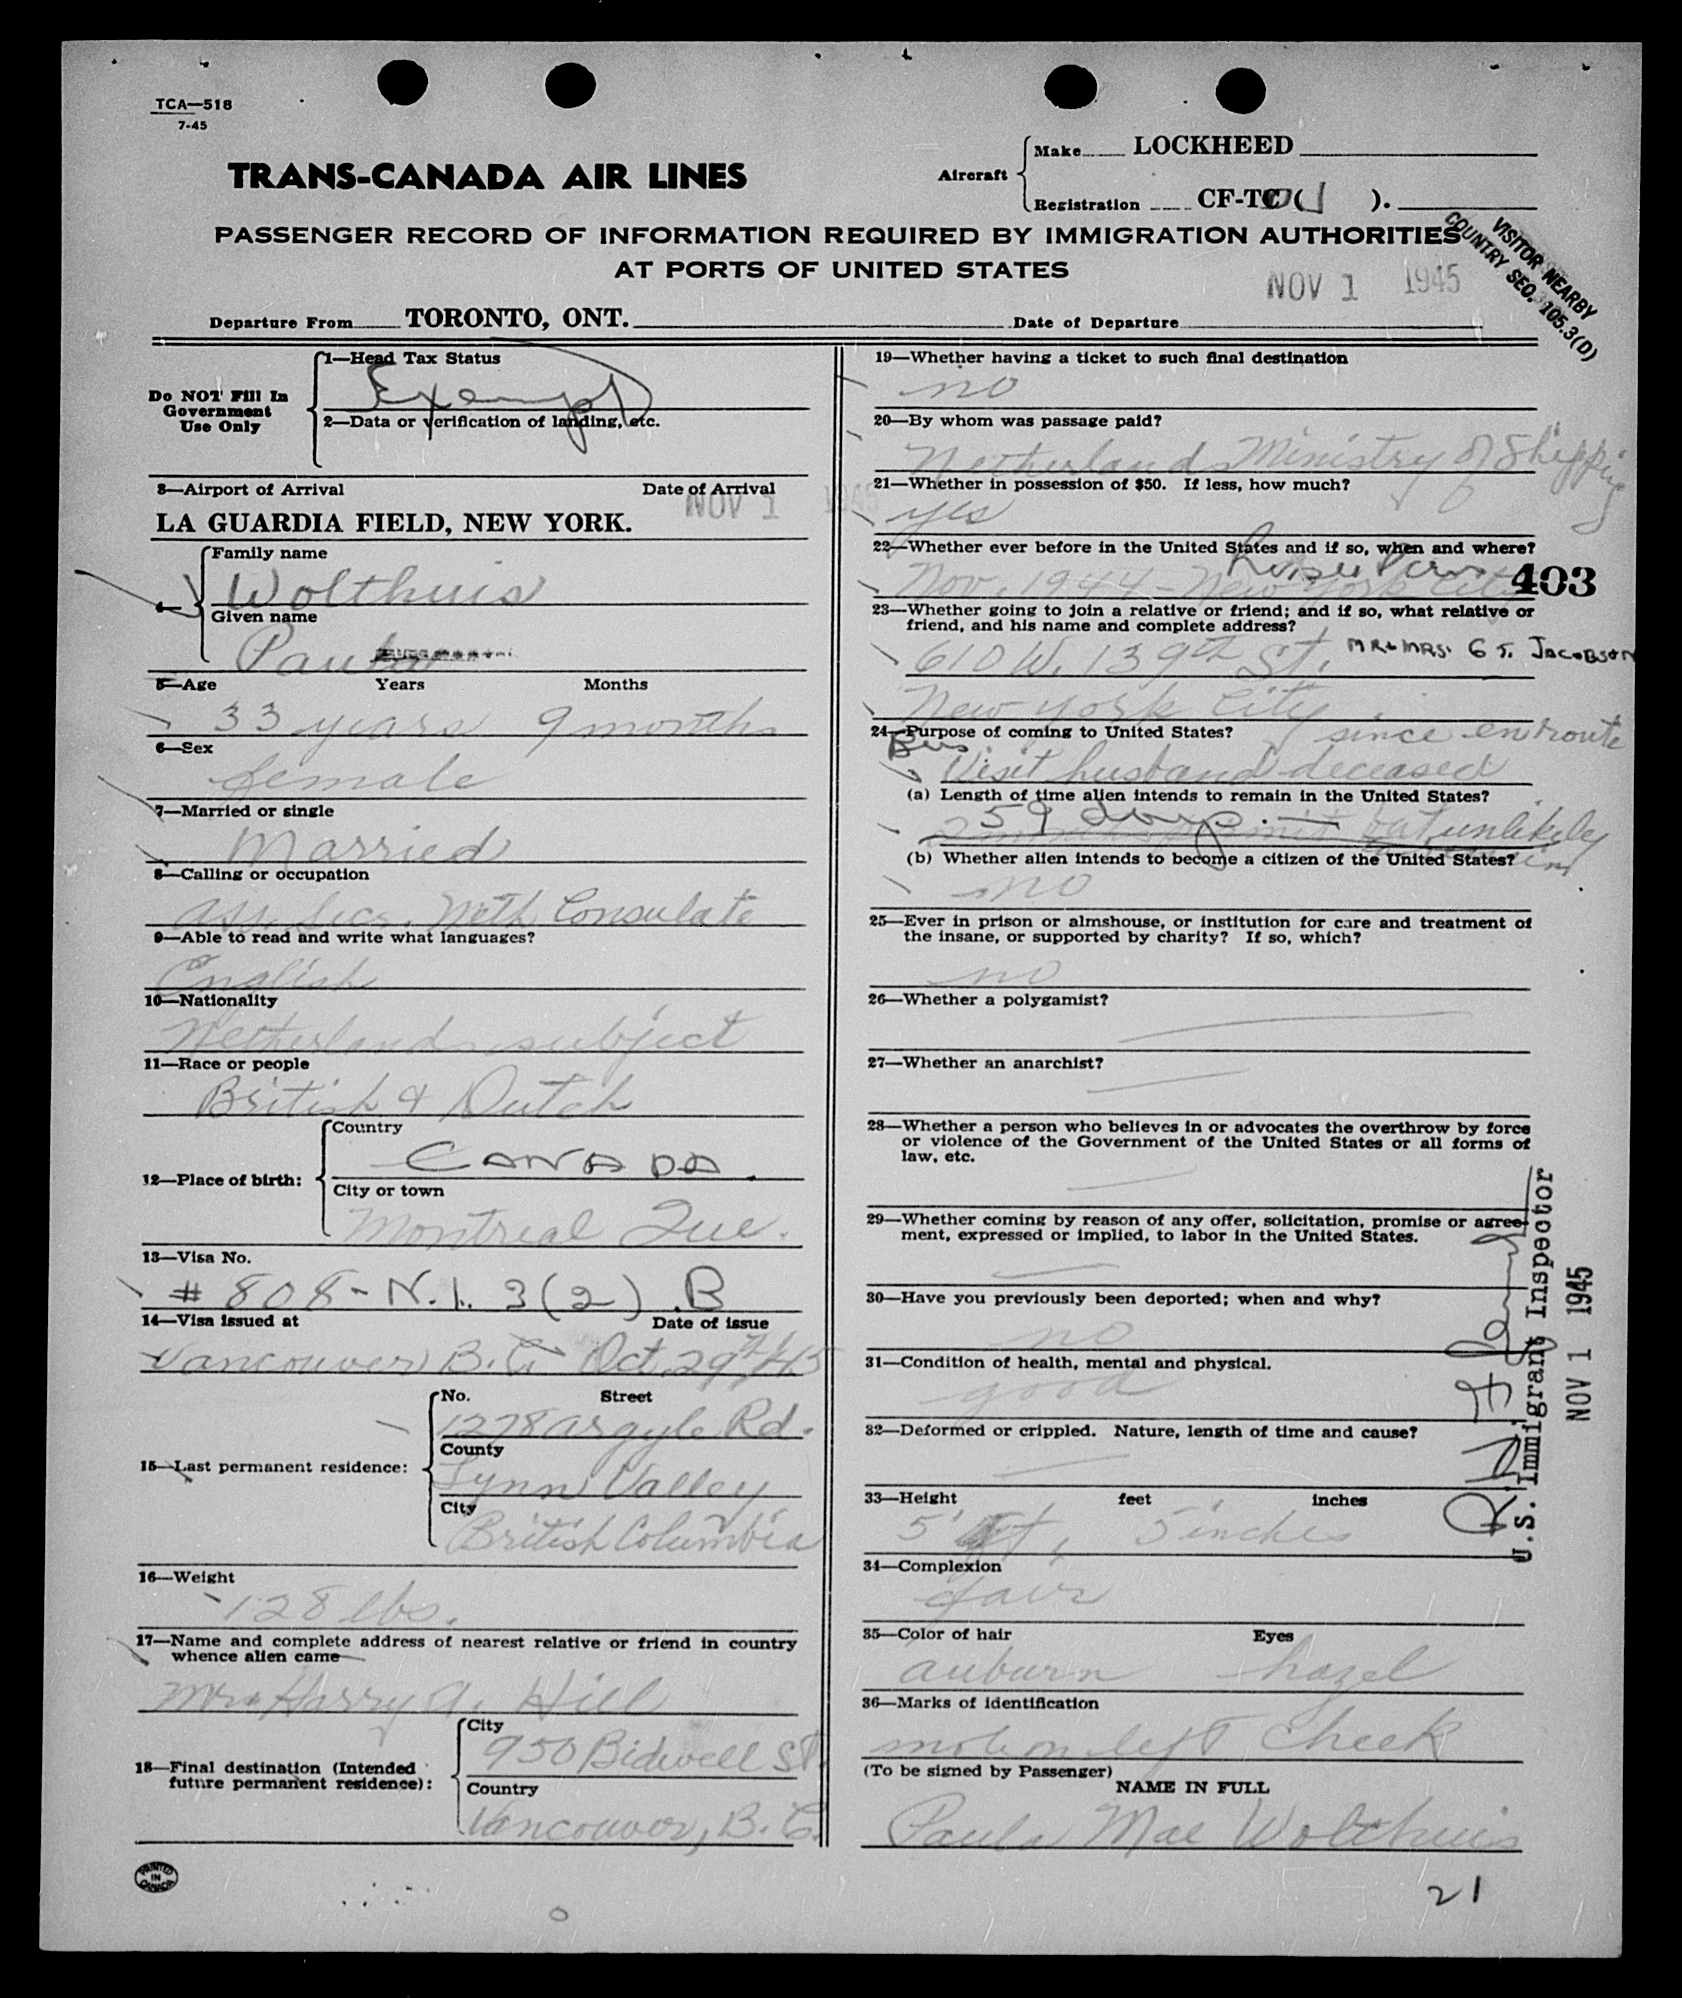 TCA—518
7-45
TRANS-CANADA AIR LINES
Aircraft
Make LOCKHEED
Registration CF-TC ( ).
PASSENGER RECORD OF INFORMATION REQUIRED BY IMMIGRATION AUTHORITIES
AT PORTS OF UNITED STATES
VISITOR NEARBY
COUNTRY SEC. 105.3(D)
NOV 1 1945
Departure From TORONTO, ONT. Date of Departure
Do NOT Fill In
Government
Use Only
1—Head Tax Status
Exempt
2—Data or verification of landing, etc.
3—Airport of Arrival Date of Arrival
NOV 1 1945
LA GUARDIA FIELD, NEW YORK.
4—
Family name
Wolthuis
Given name
Paula
5—Age Years Months
33 years 9 months
6—Sex
female
7—Married or single
Married
8—Calling or occupation
Ass. Secr. Neth Consulate
9—Able to read and write what languages?
English
10—Nationality
Netherlands subject
11—Race or people
British & Dutch
12—Place of birth:
Country
CANADA.
City or town
Montreal Que.
13—Visa No.
# 808-N.I. 3(2) B
14—Visa issued at Date of issue
Vancouver B.C. Oct 29th/45
15—Last permanent residence:
No. Street
1278 Argyle Rd.
County
Lynn Valley
City
British Columbia
16—Weight
128 lbs.
17—Name and complete address of nearest relative or friend in country
whence alien came
Harry A. Hill
18—Final destination (Intended
future permanent residence):
City
950 Bidwell St.
Country
Vancouver, B.C.
PRINTED
IN
CANADA
19—Whether having a ticket to such final destination
no
20—By whom was passage paid?
Netherlands Ministry of Shipping
21—Whether in possession of $50. If less, how much?
yes
22—Whether ever before in the United States and if so, when and where?
Nov. 1944 - New York City
403
23—Whether going to join a relative or friend; and if so, what relative or
friend, and his name and complete address?
610 W. 139th St. MR & MRS. G J. JACOBSON
New York City
24—Purpose of coming to United States? since enroute
Bus
Visit husband deceased
(a) Length of time alien intends to remain in the United States?
59 days
but unlikely
(b) Whether alien intends to become a citizen of the United States?
no
25—Ever in prison or almshouse, or institution for care and treatment of
the insane, or supported by charity? If so, which?
no
26—Whether a polygamist?
27—Whether an anarchist?
28—Whether a person who believes in or advocates the overthrow by force
or violence of the Government of the United States or all forms of
law, etc.
29—Whether coming by reason of any offer, solicitation, promise or agree-
ment, expressed or implied, to labor in the United States.
30—Have you previously been deported; when and why?
no
31—Condition of health, mental and physical.
good
32—Deformed or crippled. Nature, length of time and cause?
33—Height feet inches
5 ft, 5 inches
34—Complexion
fair
35—Color of hair Eyes
auburn hazel
36—Marks of identification
mole on left cheek
(To be signed by Passenger)
NAME IN FULL
Paula Mae Wolthuis
U.S. Immigrant Inspector
NOV 1 1945
21